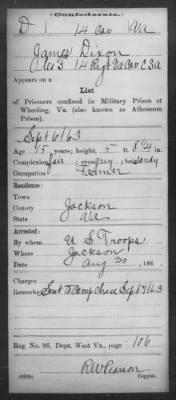 (Confederate.)
D 14 Cav Va
James Dixon
Co D 14 Regt Va Cav C.S.A
Appears on a
List
of Prisoners confined in Military Prison at
Wheeling, Va. (also known as Athenæum
Prison).
Sept 6/63
Age 45 years; height, 5 ft. 8 1/4 in.
Complexion fair; eyes grey; hair Sandy
Occupation Farmer
Residence:
Town
County Jackson
State Va
Arrested:
By whom U S Troops
Where Jackson
Date Aug 30, 186 .
Charges
Remarks Sent to Camp Chase Sept 7/63
Reg. No. 96, Dept. West Va., page 106
R W Pearson
Copyist.